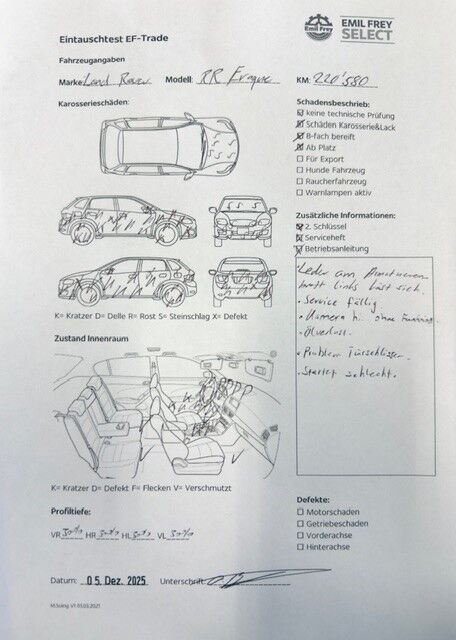 Eintauschtest EF-Trade
Emil Frey
EMIL FREY
SELECT
Fahrzeugangaben
Marke: Land Rover Modell: RR Evoque KM: 220'580
Karosserieschäden:
Schadensbeschrieb:
keine technische Prüfung
Schäden Karosserie&Lack
8-fach bereift
Ab Platz
Für Export
Hunde Fahrzeug
Raucherfahrzeug
Warnlampen aktiv
Zusätzliche Informationen:
2. Schlüssel
Serviceheft
Betriebsanleitung
K= Kratzer D= Delle R= Rost S= Steinschlag X= Defekt
Leder am Armaturen
brett links löst sich.
- Service fällig.
- Kamera hi. ohne Funktion.
- Ölverlust.
- Problem Türschlösser.
- Startet schlecht.
Zustand Innenraum
K= Kratzer D= Defekt F= Flecken V= Verschmutzt
Profiltiefe:
VR 30% HR 30% HL 30% VL 30%
Defekte:
Motorschaden
Getriebeschaden
Vorderachse
Hinterachse
Datum: 05. Dez. 2025 Unterschrift:
M.Suing V1 01.03.2021